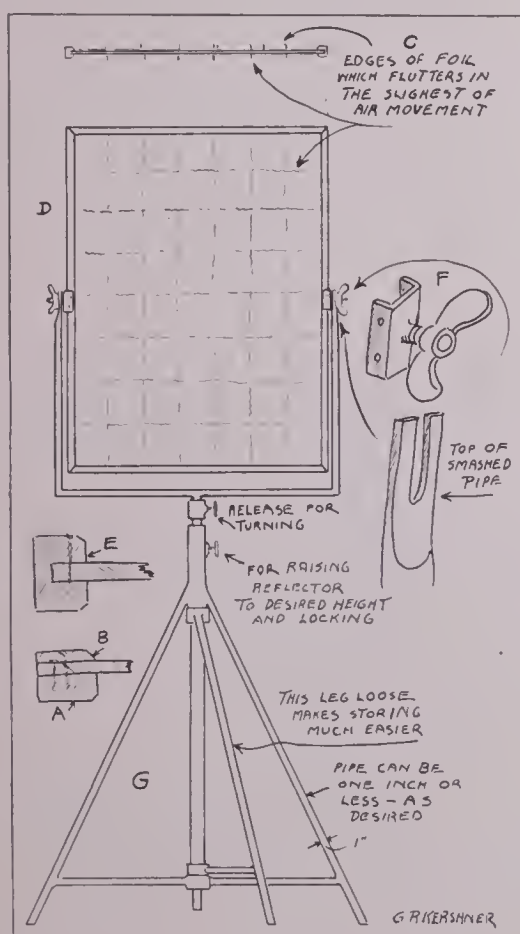 C
EDGES OF FOIL
WHICH FLUTTERS IN
THE SLIGHEST OF
AIR MOVEMENT
D
F
TOP OF
SMASHED
PIPE
RELEASE FOR
TURNING
E
FOR RAISING
REFLECTOR
TO DESIRED HEIGHT
AND LOCKING
B
A
THIS LEG LOOSE
MAKES STORING
MUCH EASIER
G
PIPE CAN BE
ONE INCH OR
LESS - AS
DESIRED
1"
G R KERSHNER